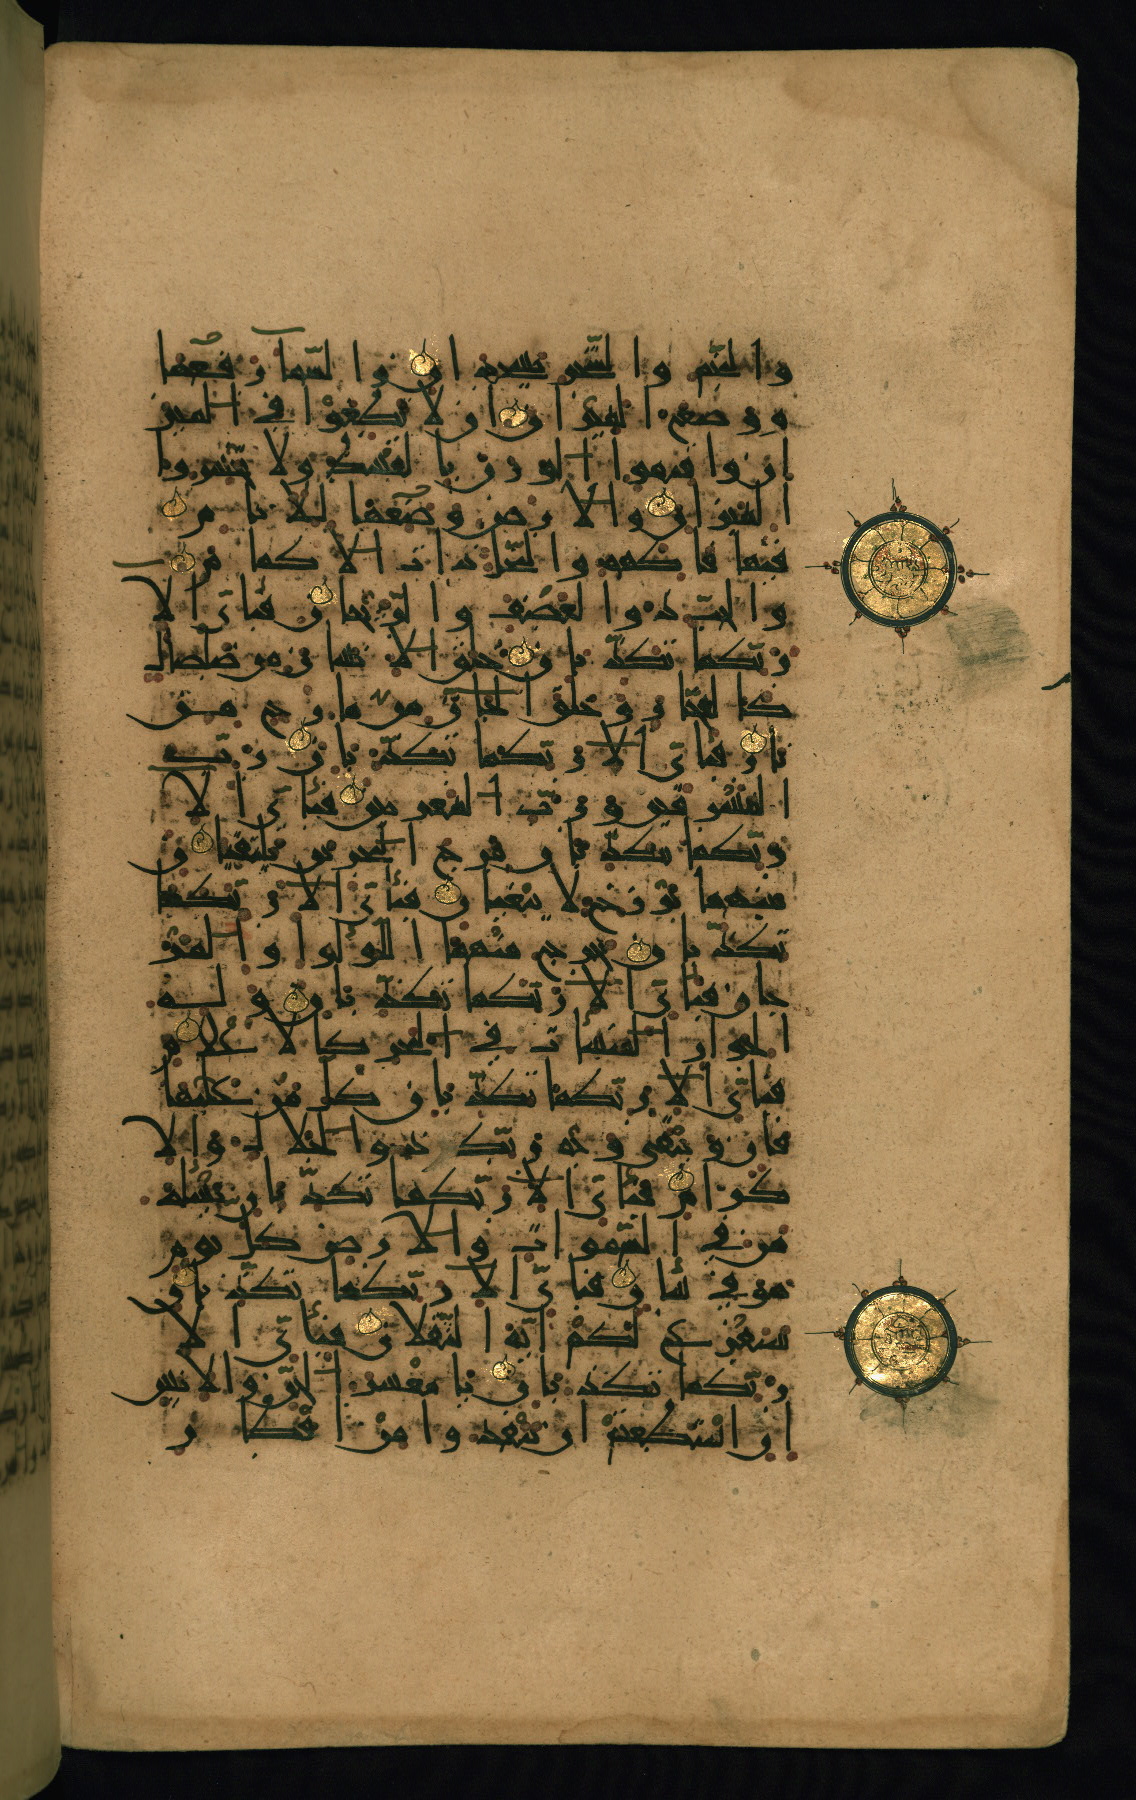 والنجم والشجر يسجدان والسمآ رفعها
ووضع الميزان ان لا تطغوا في الميز
ان واقيموا الوزن بالقسط ولا تخسروا
الميزان والارض وضعها للانام
فيها فاكهة والنخل ذات الاكمام
والحب ذو العصف والريحان فبأي الا
ربكما تكذبان خلق الانسان من صلصال
كالفخار وخلق الجآن من مارج من
نار فبأي الا ربكما تكذبان رب
المشرقين ورب المغربين فبأي الا
ربكما تكذبان مرج البحرين يلتقيان
بينهما برزخ لا يبغيان فبأي الا ربكما
تكذبان يخرج منهما اللؤلؤا والمر
جان فبأي الا ربكما تكذبان وله
الجوار المنشات في البحر كالاعلام
فبأي الا ربكما تكذبان كل من عليها
فان ويبقى وجه ربك ذو الجلال والا
كرام فبأي الا ربكما تكذبان يسئله
من في السموات والارض كل يوم
هو في شان فبأي الا ربكما تكذبان
سنفرغ لكم ايه الثقلان فبأي الا
ربكما تكذبان يا معشر الجن والانس
ان استطعتم ان تنفذوا من اقطار